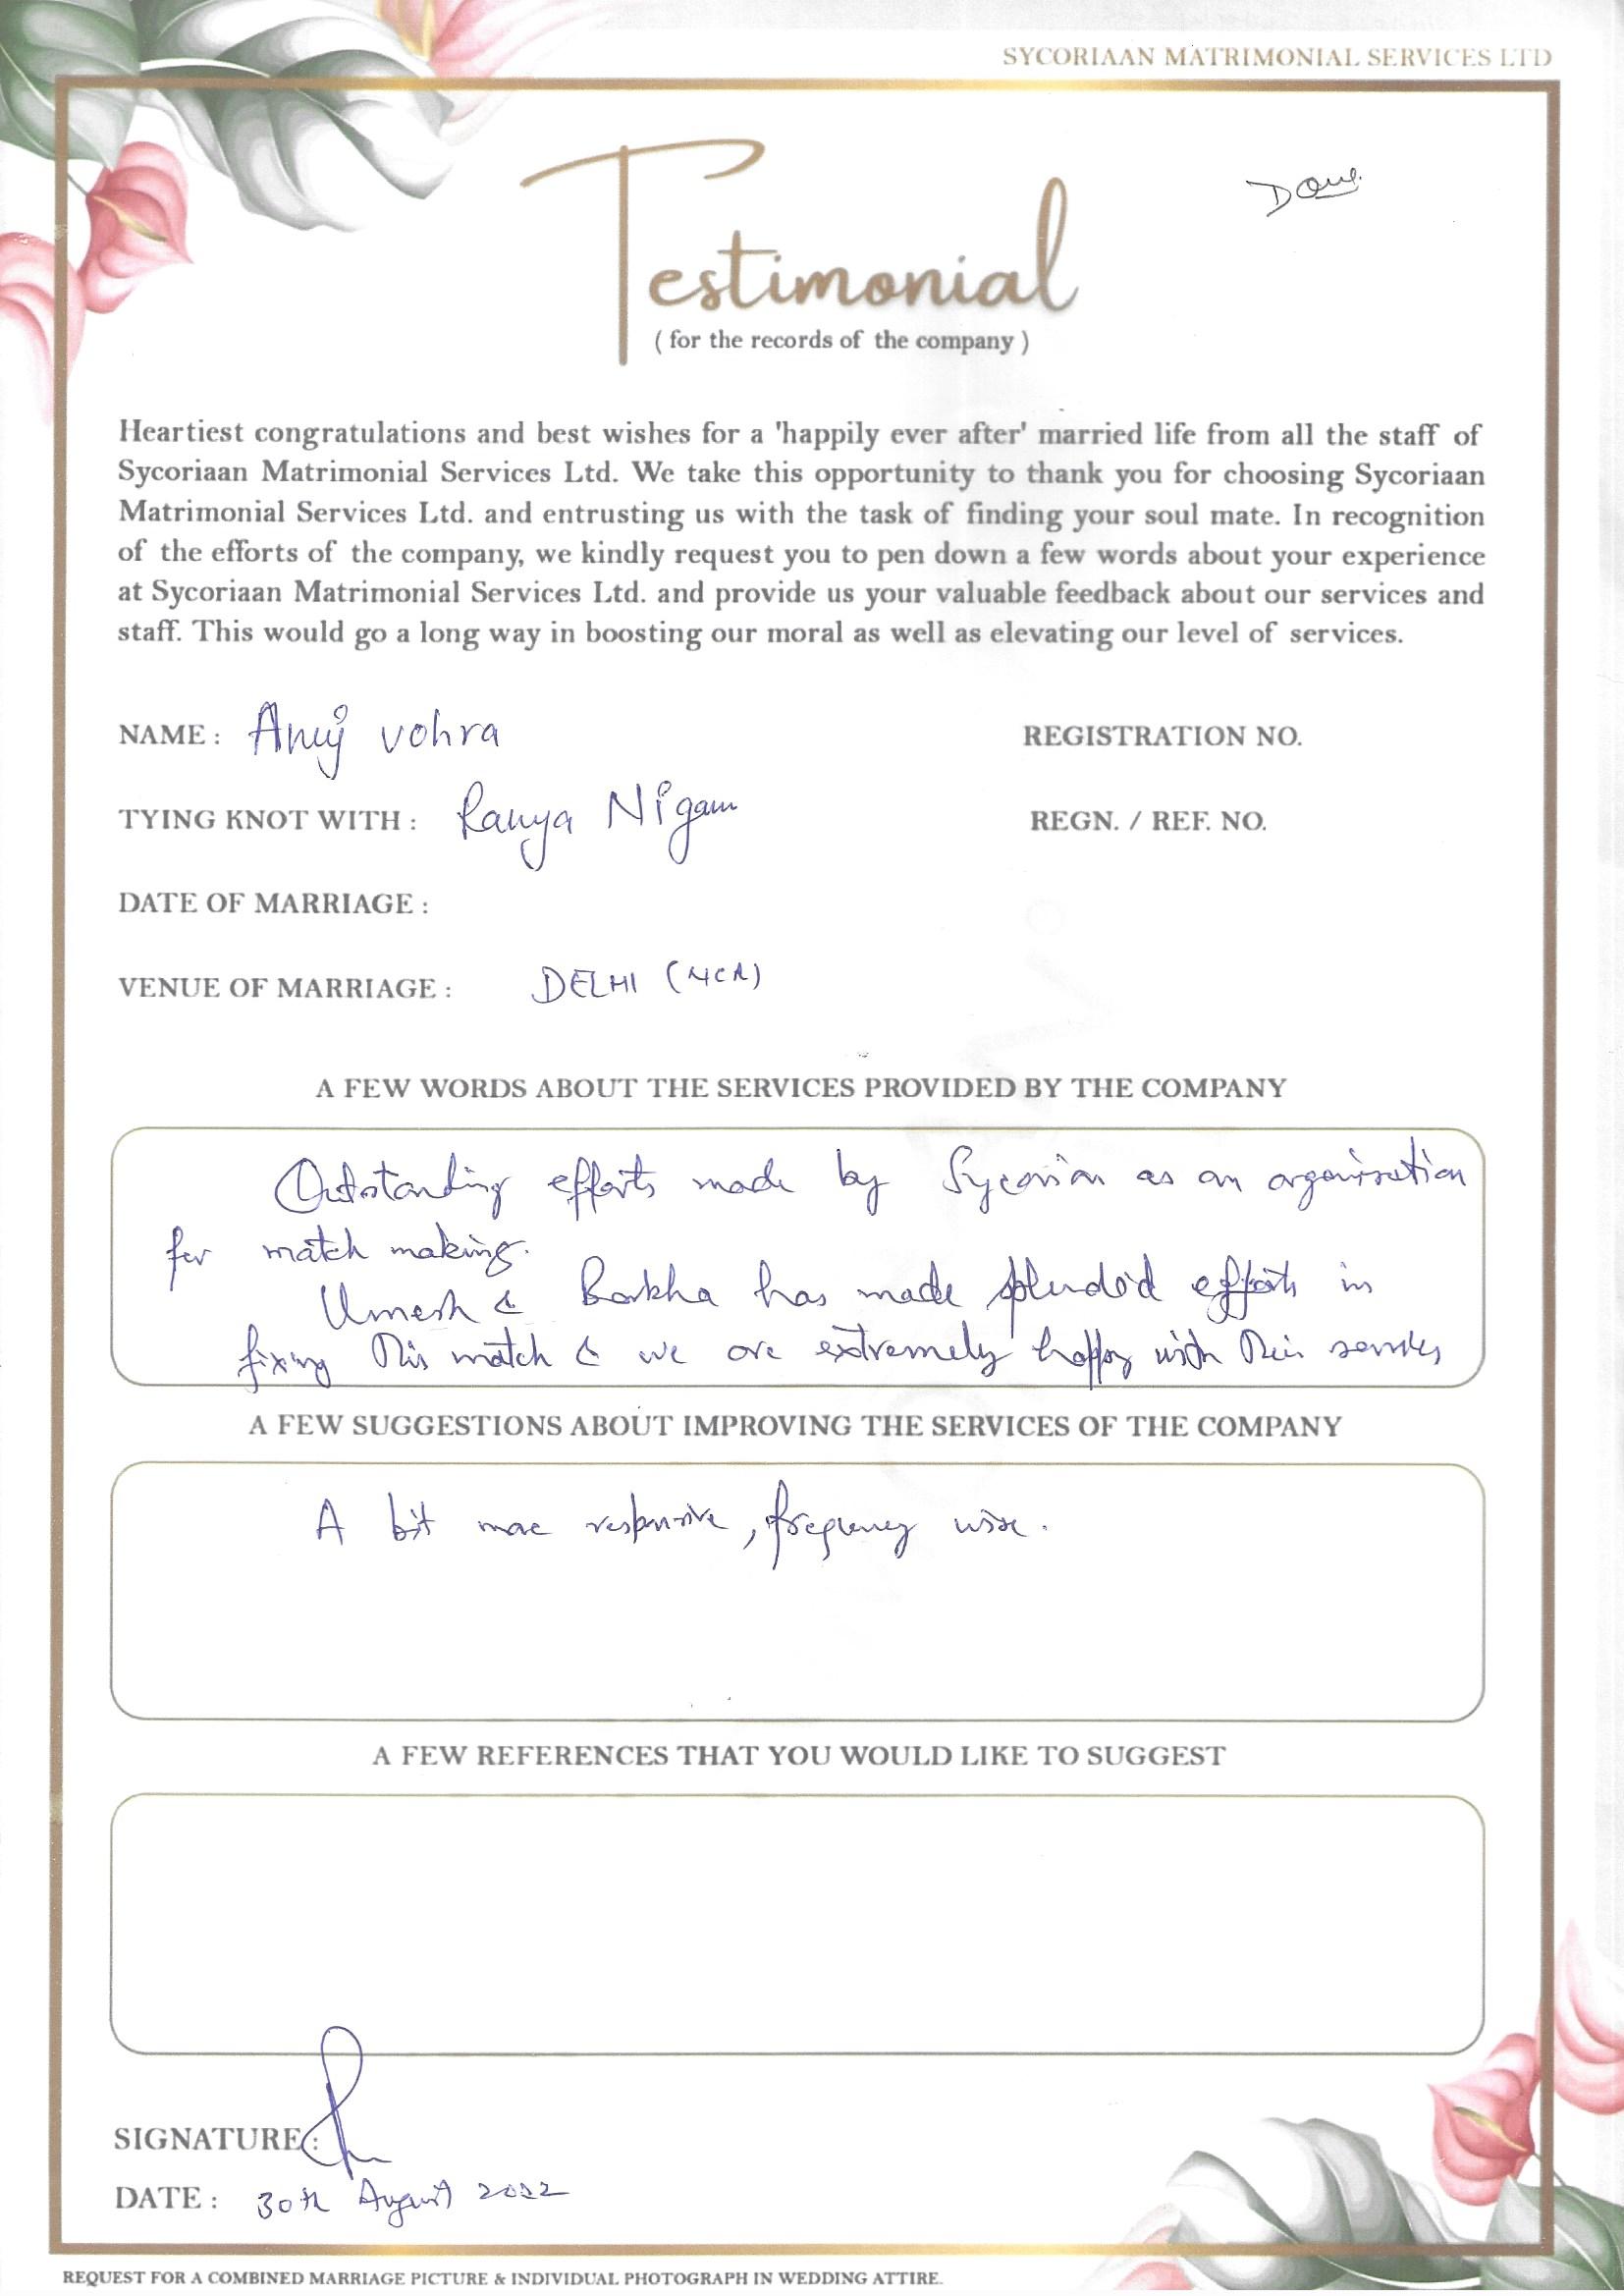 SYCORIAAN MATRIMONIAL SERVICES LTD
Done.
Testimonial
( for the records of the company )
Heartiest congratulations and best wishes for a 'happily ever after' married life from all the staff of
Sycoriaan Matrimonial Services Ltd. We take this opportunity to thank you for choosing Sycoriaan
Matrimonial Services Ltd. and entrusting us with the task of finding your soul mate. In recognition
of the efforts of the company, we kindly request you to pen down a few words about your experience
at Sycoriaan Matrimonial Services Ltd. and provide us your valuable feedback about our services and
staff. This would go a long way in boosting our moral as well as elevating our level of services.
NAME : Anuj vohra REGISTRATION NO.
TYING KNOT WITH : Ranya Nigam REGN. / REF. NO.
DATE OF MARRIAGE :
VENUE OF MARRIAGE : DELHI (NCR)
A FEW WORDS ABOUT THE SERVICES PROVIDED BY THE COMPANY
Outstanding efforts made by Sycorian as an organisation
for match making.
Umesh & Barkha has made splendid efforts in
fixing this match & we are extremely happy with their services
A FEW SUGGESTIONS ABOUT IMPROVING THE SERVICES OF THE COMPANY
A bit more responsive, frequency wise.
A FEW REFERENCES THAT YOU WOULD LIKE TO SUGGEST
SIGNATURE :
DATE : 30th August 2022
REQUEST FOR A COMBINED MARRIAGE PICTURE & INDIVIDUAL PHOTOGRAPH IN WEDDING ATTIRE.